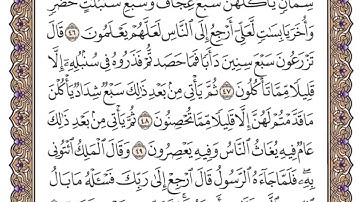 سِمَانٍ يَأْكُلُهُنَّ سَبْعٌ عِجَافٌ وَسَبْعِ سُنْبُلَٰتٍ خُضْرٍ
وَأُخَرَ يَابِسَٰتٍ لَّعَلِّىٓ أَرْجِعُ إِلَى ٱلنَّاسِ لَعَلَّهُمْ يَعْلَمُونَ ٤٦ قَالَ
تَزْرَعُونَ سَبْعَ سِنِينَ دَأَبًا فَمَا حَصَدتُّمْ فَذَرُوهُ فِى سُنۢبُلِهِۦٓ إِلَّا
قَلِيلًا مِّمَّا تَأْكُلُونَ ٤٧ ثُمَّ يَأْتِى مِنۢ بَعْدِ ذَٰلِكَ سَبْعٌ شِدَادٌ يَأْكُلْنَ
مَا قَدَّمْتُمْ لَهُنَّ إِلَّا قَلِيلًا مِّمَّا تُحْصِنُونَ ٤٨ ثُمَّ يَأْتِى مِنۢ بَعْدِ ذَٰلِكَ
عَامٌ فِيهِ يُغَاثُ ٱلنَّاسُ وَفِيهِ يَعْصِرُونَ ٤٩ وَقَالَ ٱلْمَلِكُ ٱئْتُونِى
بِهِۦ فَلَمَّا جَآءَهُ ٱلرَّسُولُ قَالَ ٱرْجِعْ إِلَىٰ رَبِّكَ فَسْـَٔلْهُ مَا بَالُ